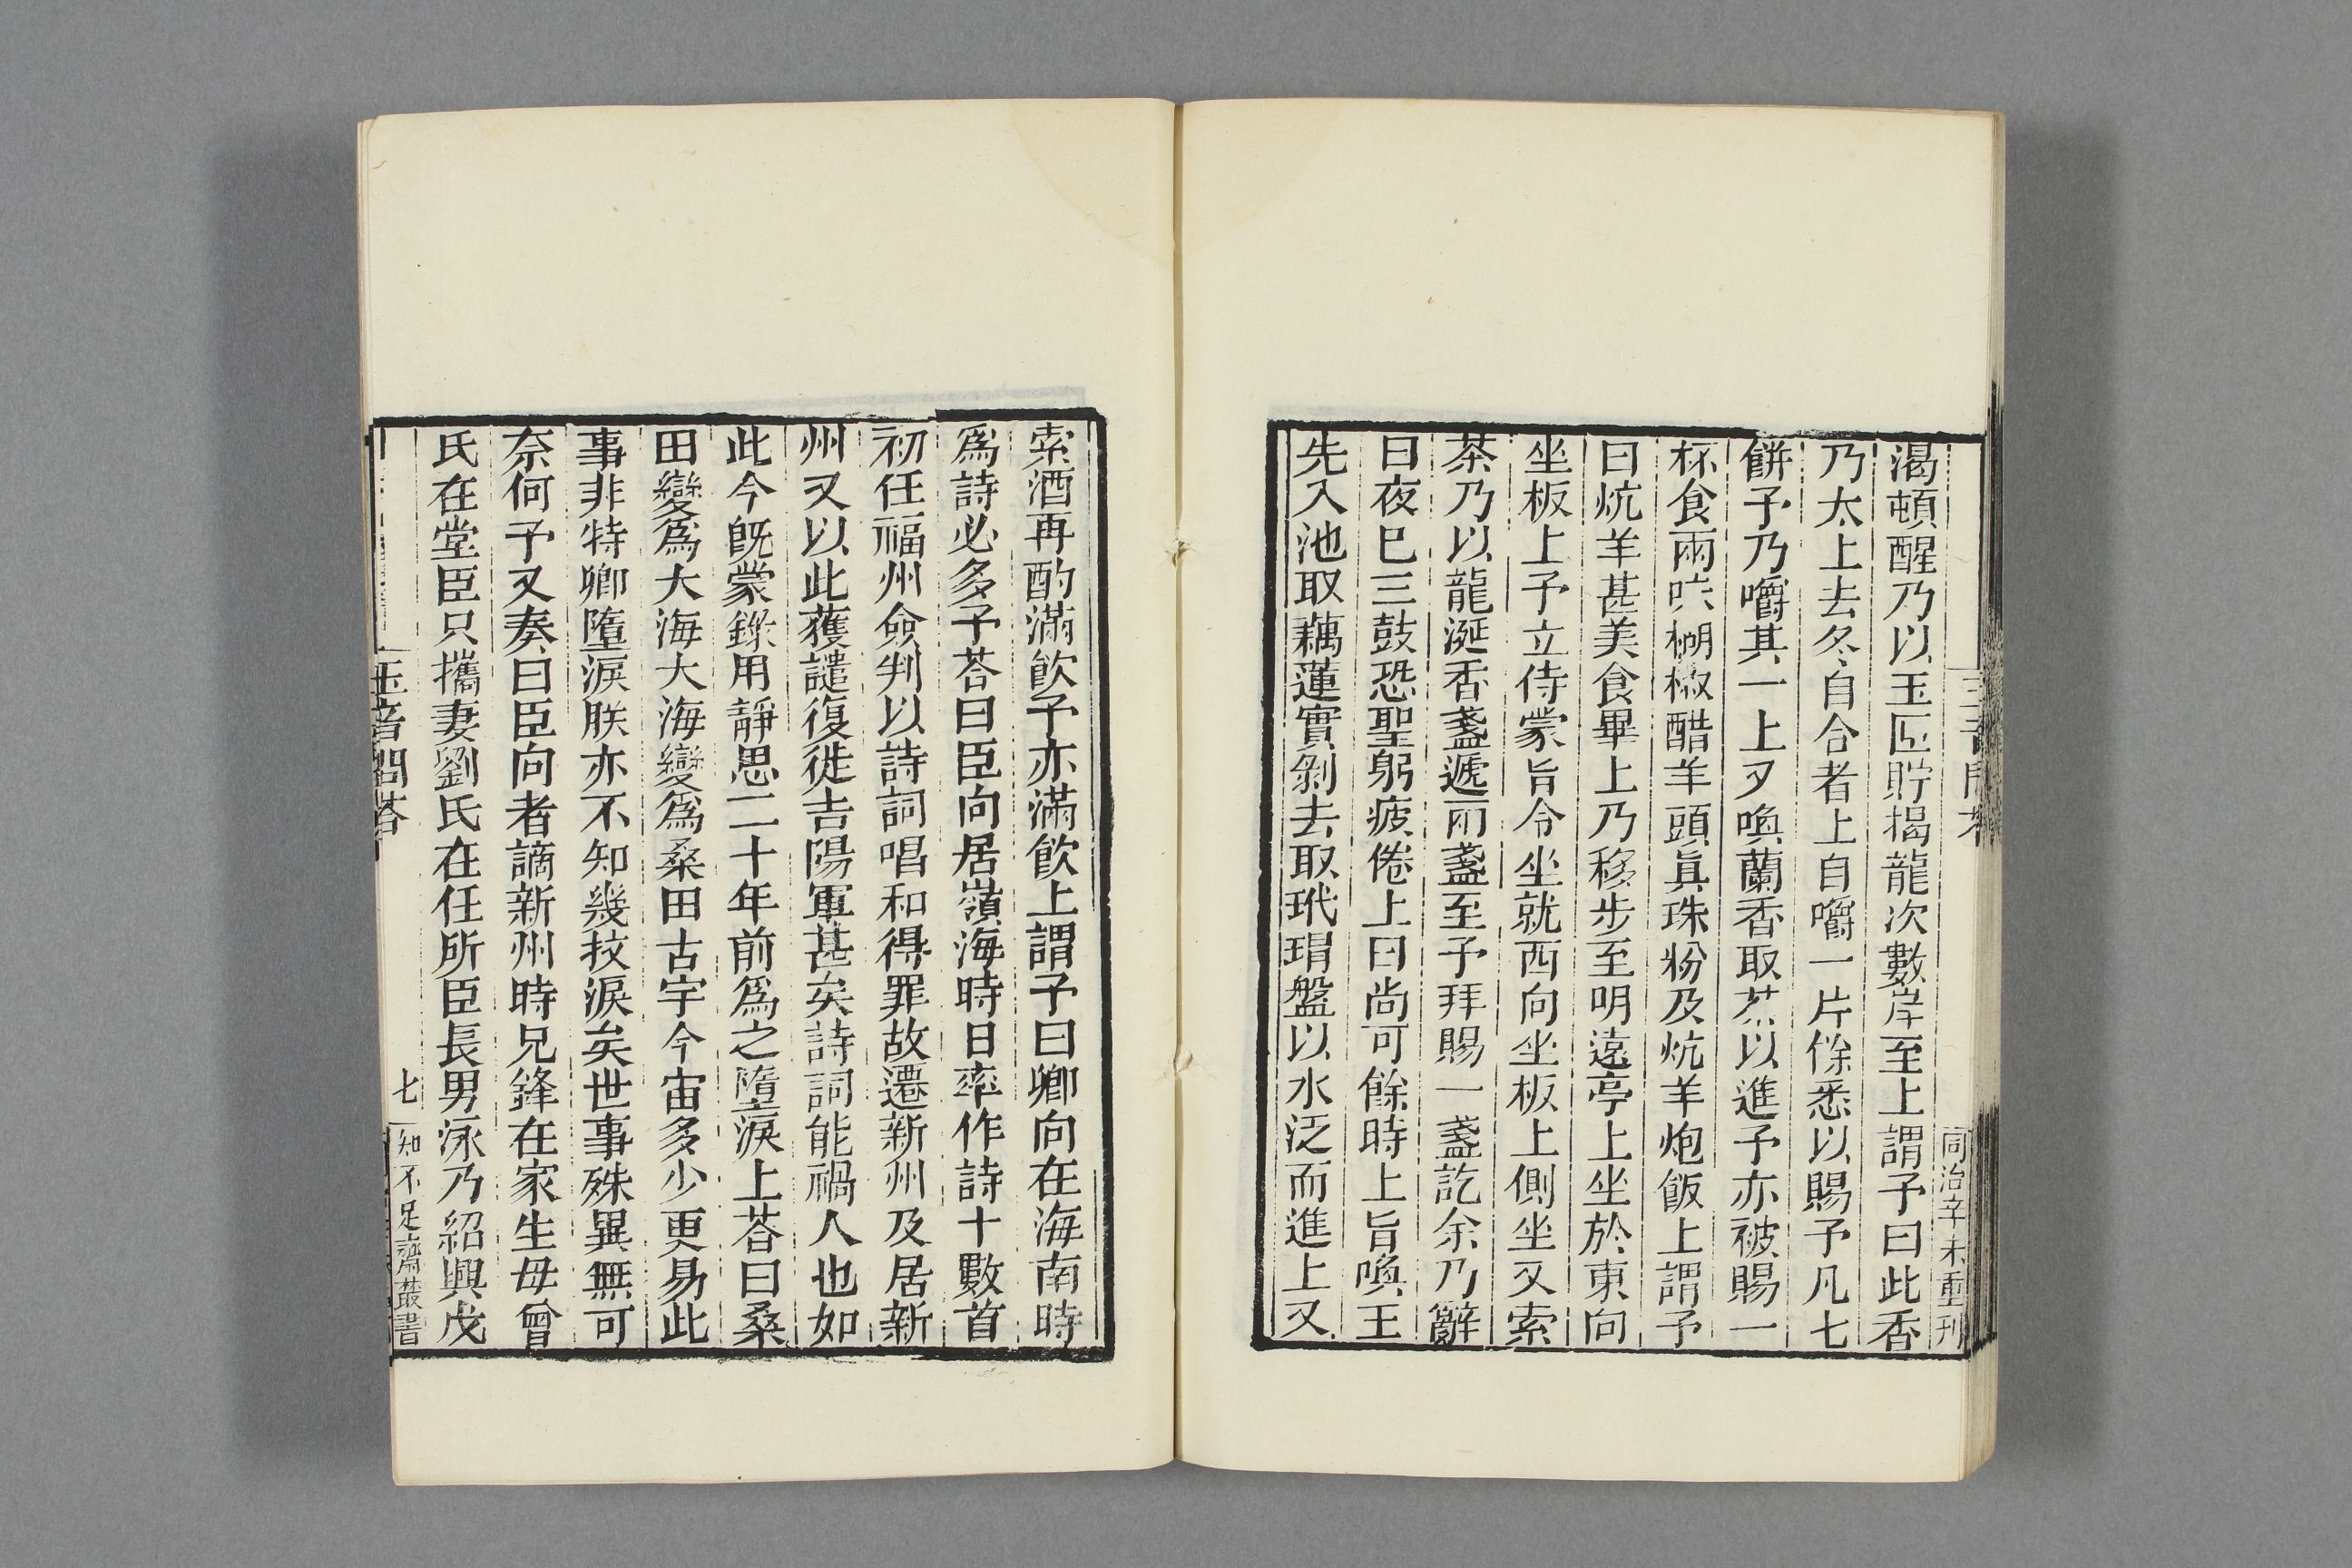 同治辛未重刊
渴頓醒乃以玉匜貯揭龍次數岸至上謂予曰此香
乃太上去冬自合者上自嚼一片餘悉以賜予凡七
餅子乃嚼其一上又喚蘭香取茶以進予亦被賜一
杯食兩胡椒醋羊頭眞珠粉及炕羊炮飯上謂予
曰炕羊甚美食畢上乃移步至明遠亭上坐於東向
坐板上予立侍蒙旨令坐就西向坐板上側坐又索
茶乃以龍涎香盞遞兩盞至予拜賜一盞訖余乃辭
曰夜巳三鼓恐聖躬疲倦上曰尚可餘時上旨喚王
先入池取藕蓮實剝去取玳瑁盤以水泛而進上又
索酒再酌滿飮予亦滿飮上謂予曰卿向在海南時
爲詩必多予荅曰臣向居嶺海時日率作詩十數首
初任福州僉判以詩詞唱和得罪故遷新州及居新
州又以此獲譴復徙吉陽軍甚矣詩詞能禍人也如
此今旣蒙錄用靜思二十年前爲之墮淚上荅曰桑
田變爲大海大海變爲桑田古宇今宙多少更易此
事非特卿墮淚朕亦不知幾技淚矣世事殊異無可
奈何予又奏曰臣向者謫新州時兄鋒在家生母曾
氏在堂臣只攜妻劉氏在任所臣長男泳乃紹興戊
玉音問荅
七
知不足齋叢書